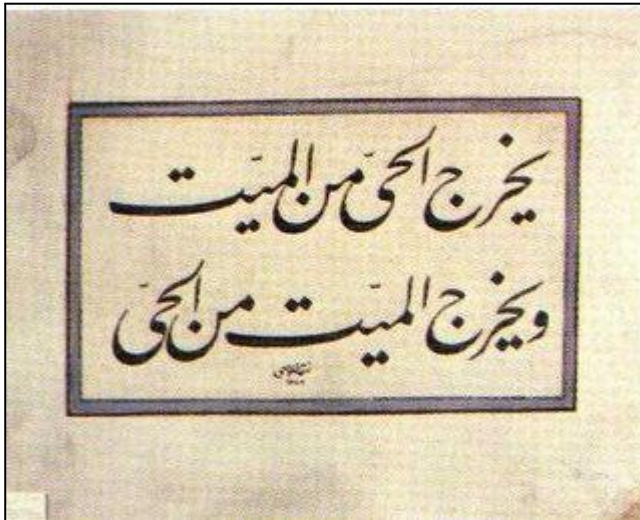 يخرج الحيّ من الميّت
ويخرج الميّت من الحيّ